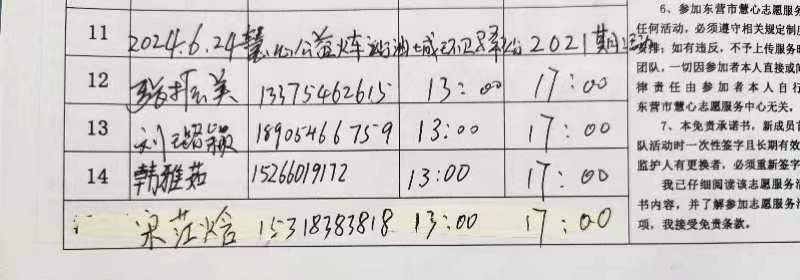 11
2024.6.24慧心公益火车站油城环卫驿站2021期活动
12 张振美 13375462615 13:00 17:00
13 刘璐颖 18905466759 13:00 17:00
14 韩雅茹 15266019172 13:00 17:00
宋莛焓 15318383818 13:00 17:00
6、参加东营市慧心志愿服务
任何活动,必须遵守相关规定制度
安排;如有违反,不予上传服务时
团队,一切因参加者本人直接或间
律责任由参加者本人自行
东营市慧心志愿服务中心无关。
7、本免责承诺书,新成员首
队活动时一次性签字且长期有效
监护人有更换者,必须重新签字
我已仔细阅读该志愿服务活
书内容,并了解参加志愿服务活
项,我接受免责条款。